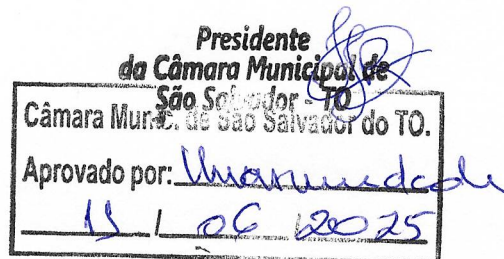 Presidente
da Câmara Municipal de
São Salvador - TO
Câmara Munic. de São Salvador do TO.
Aprovado por: Unanimidade
11 / 06 / 2025